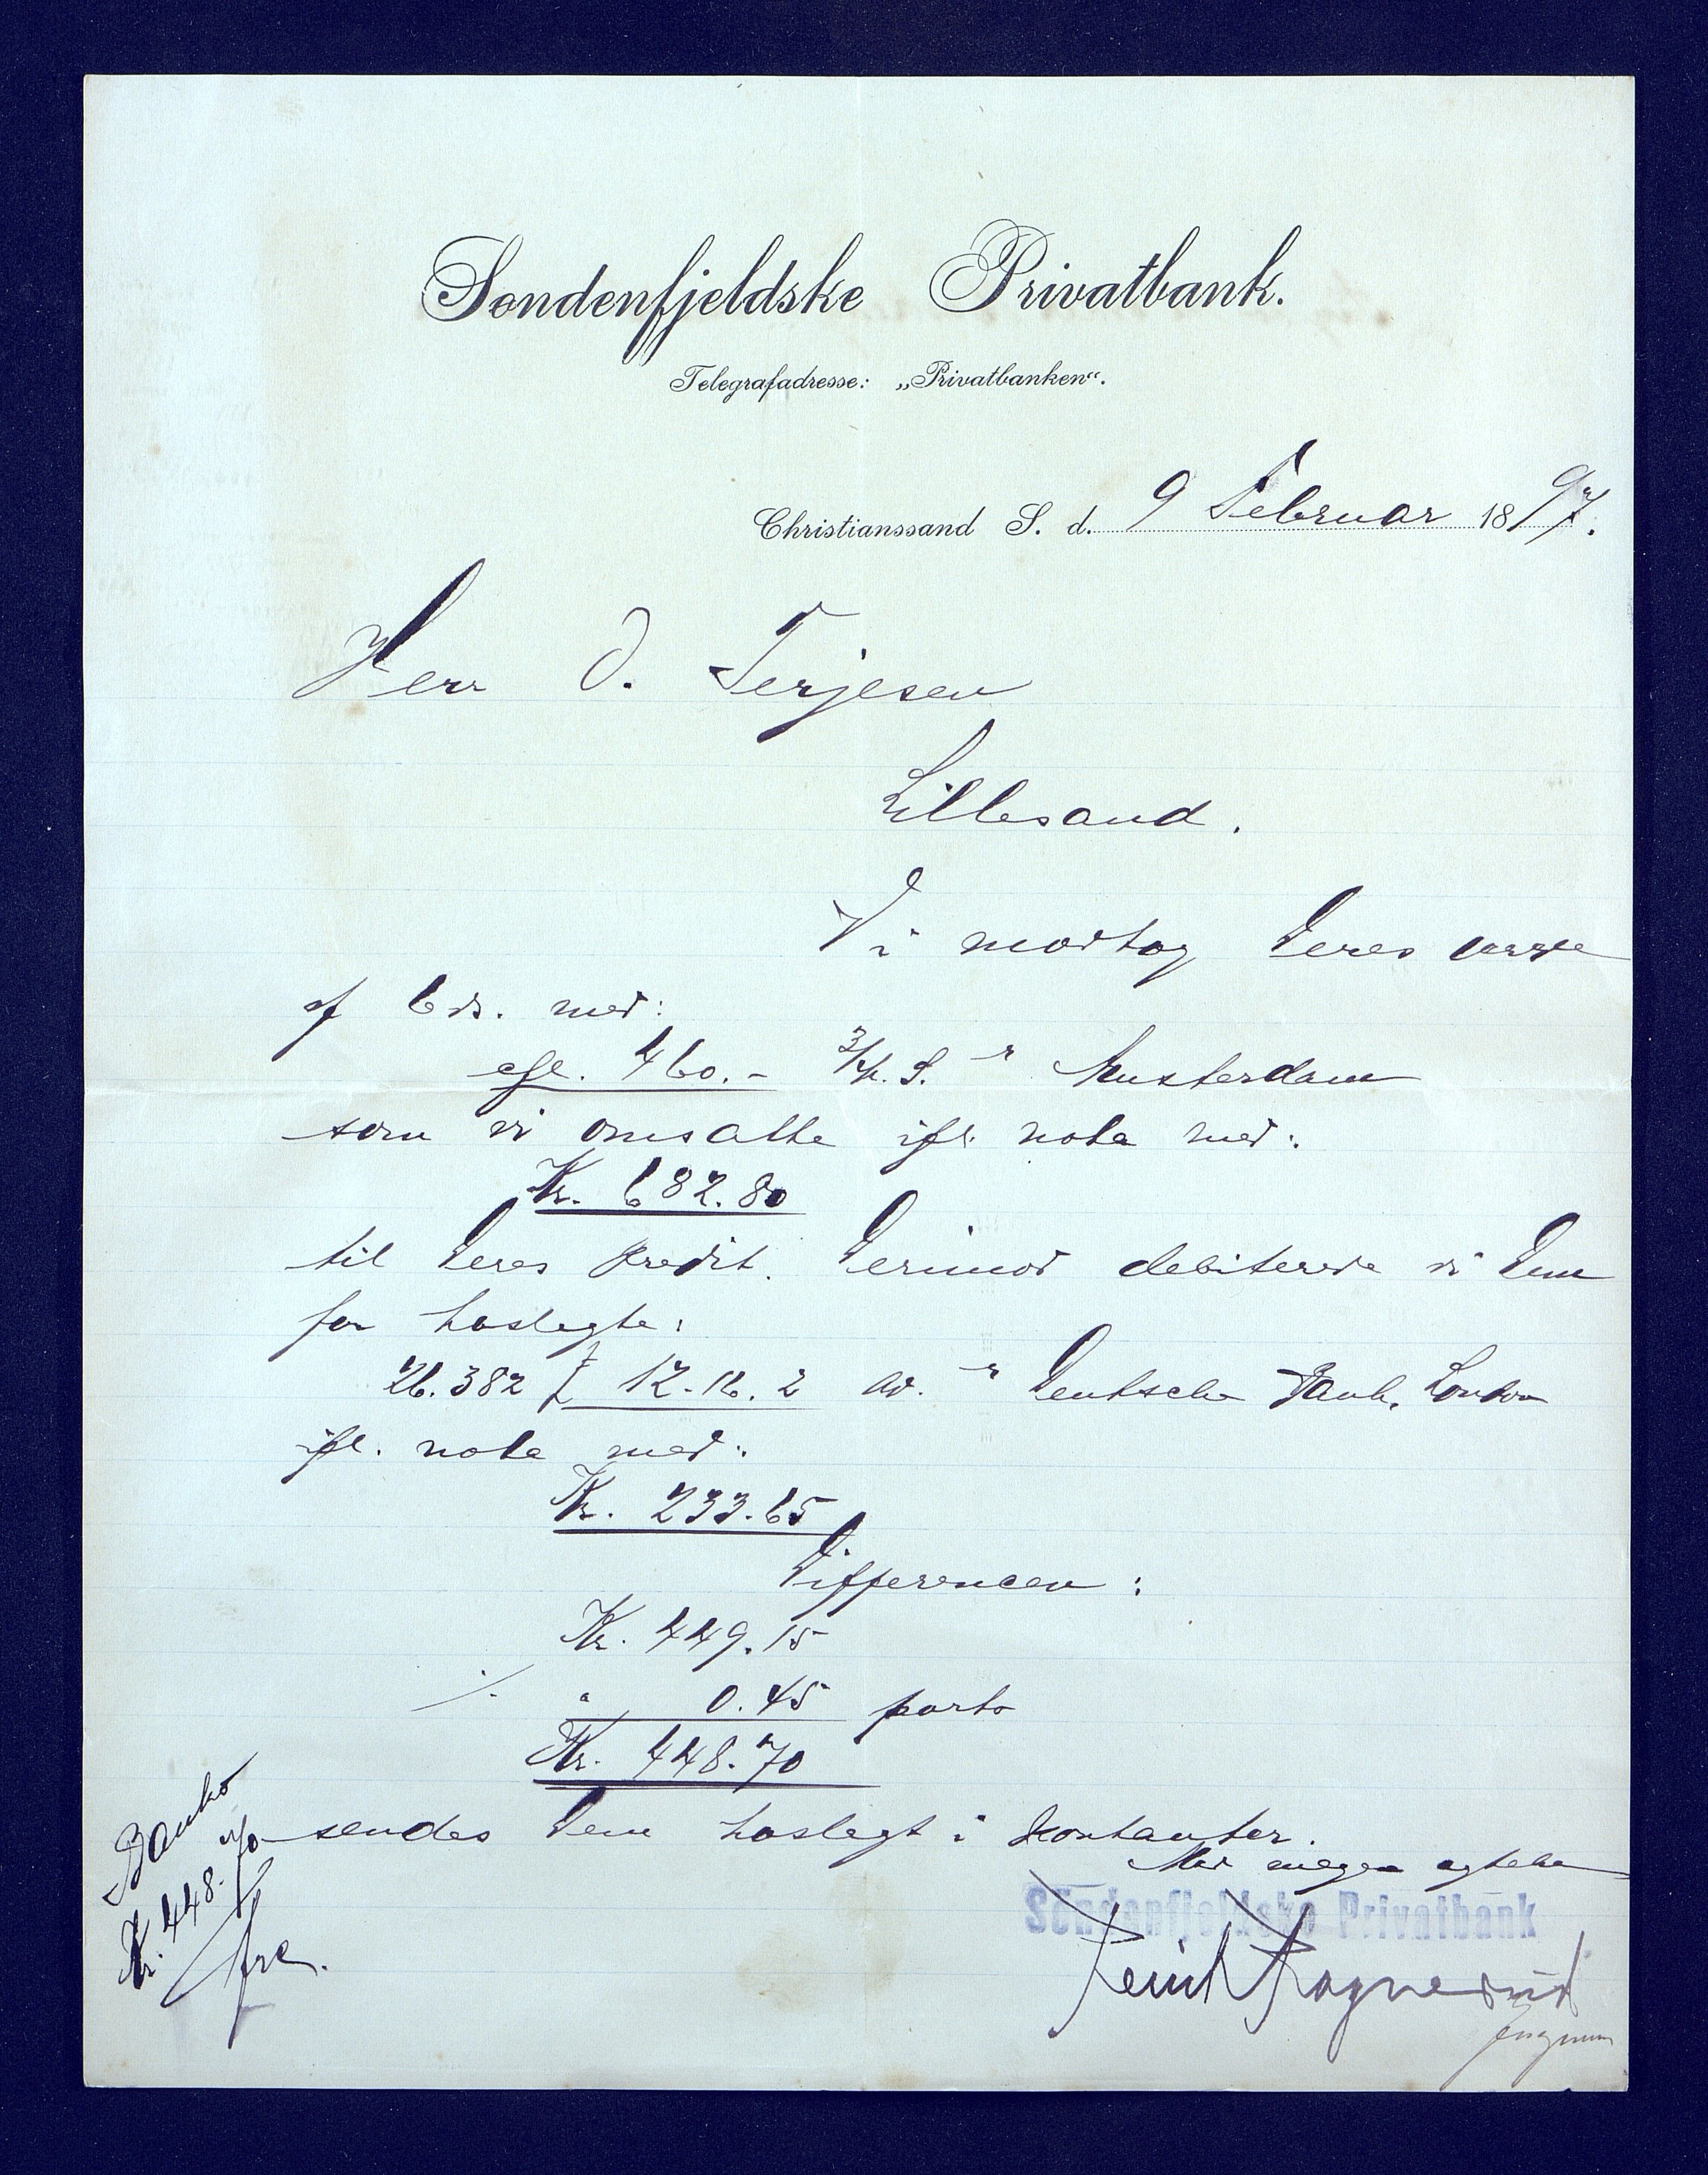 Søndenfjeldske Privatbank.
Telegrafadresse: „Privatbanken“.
Christianssand S. d. 9 Februar 1897.
Herr O. Terjesen
Lillesand.
Vi modtog Deres ærede
af 6 ds. med:
460.- S. " Amsterdam
som vi omsatte ifl. nota med:
Kr. 682.80
til Deres Kredit. Derimod debiterede vi Dem
for hoslagte:
26.382 £ 12.16.2 av. " Deutsche Bank, London
ifl. nota med:
Kr. 233.65
Differencen:
Kr. 449.15
./. " 0.45 porto
Kr. 448.70
sendes Dem hoslagt i Kontanter.
Med megen agtelse
Söndenfjeldske Privatbank
Banko
Kr. 448.70